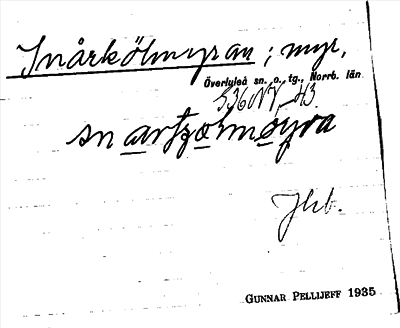 Snårkölmyran; myr,
Överluleå sn. o. tg., Norrb. län
536NV, 43
sn artʒolmøyra
Jhb.
GUNNAR PELLIJEFF 1935